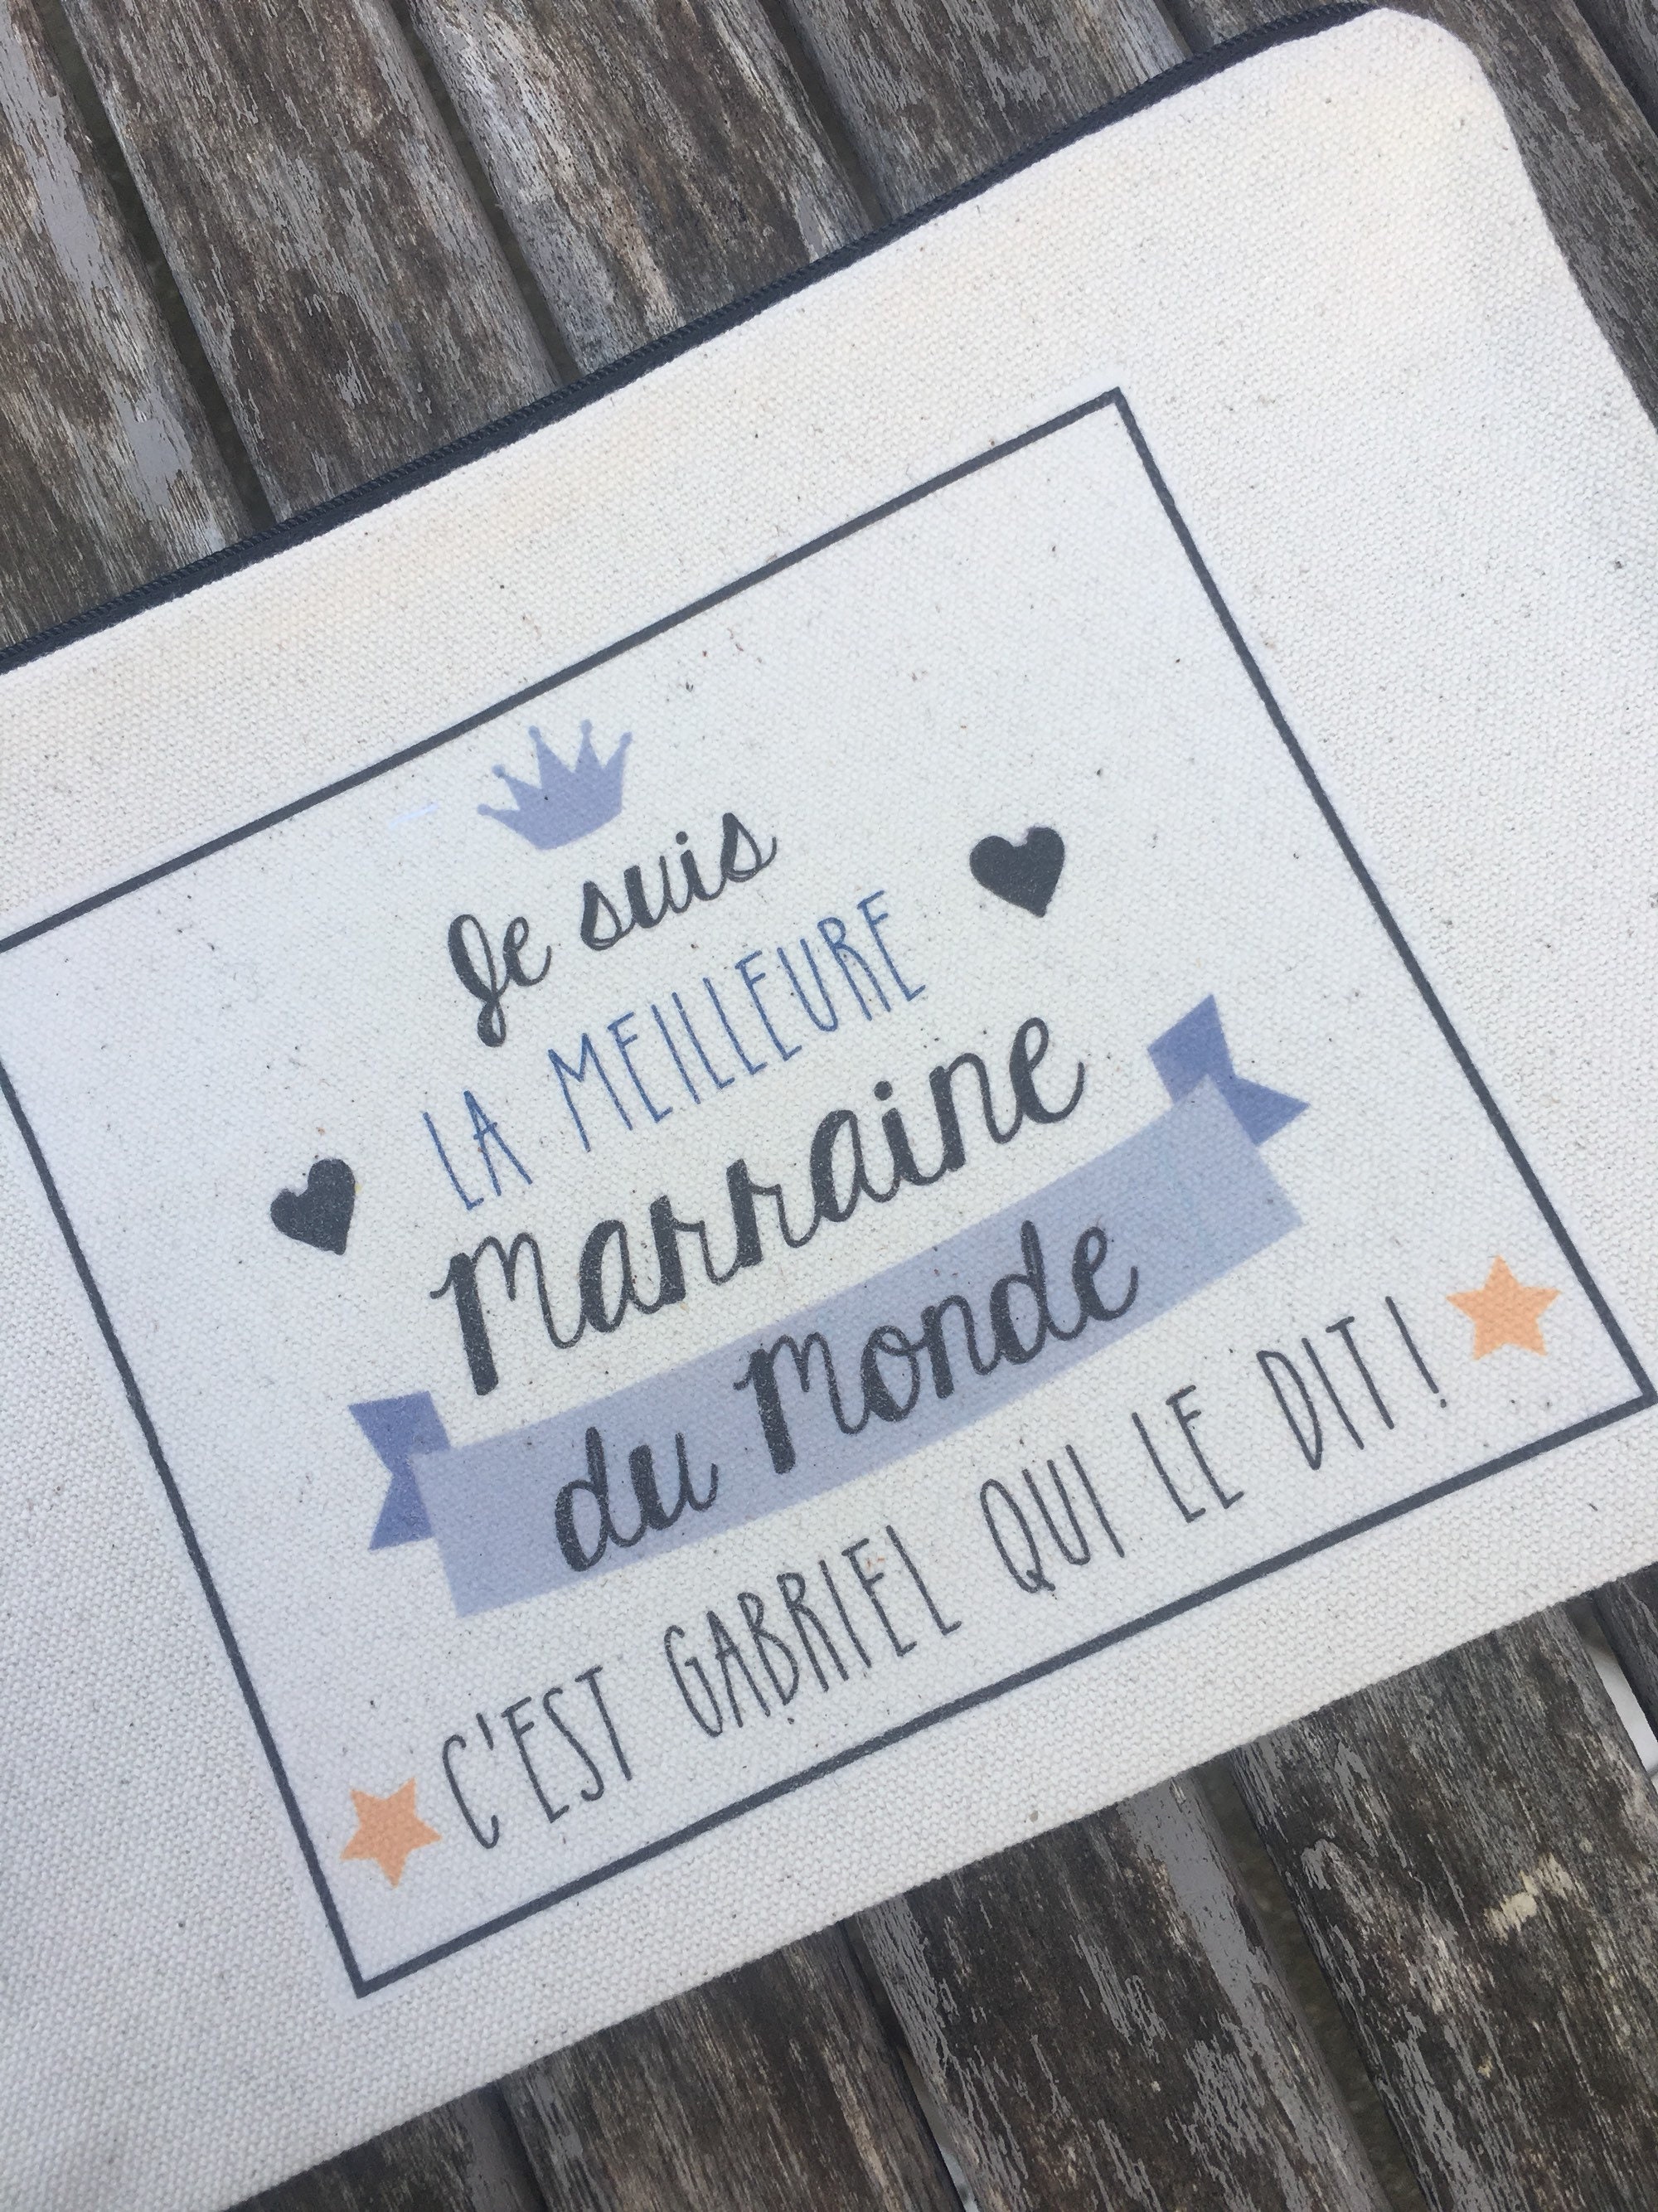 Je suis
LA MEILLEURE
Marraine
du Monde
C'EST GABRIEL QUI LE DIT !